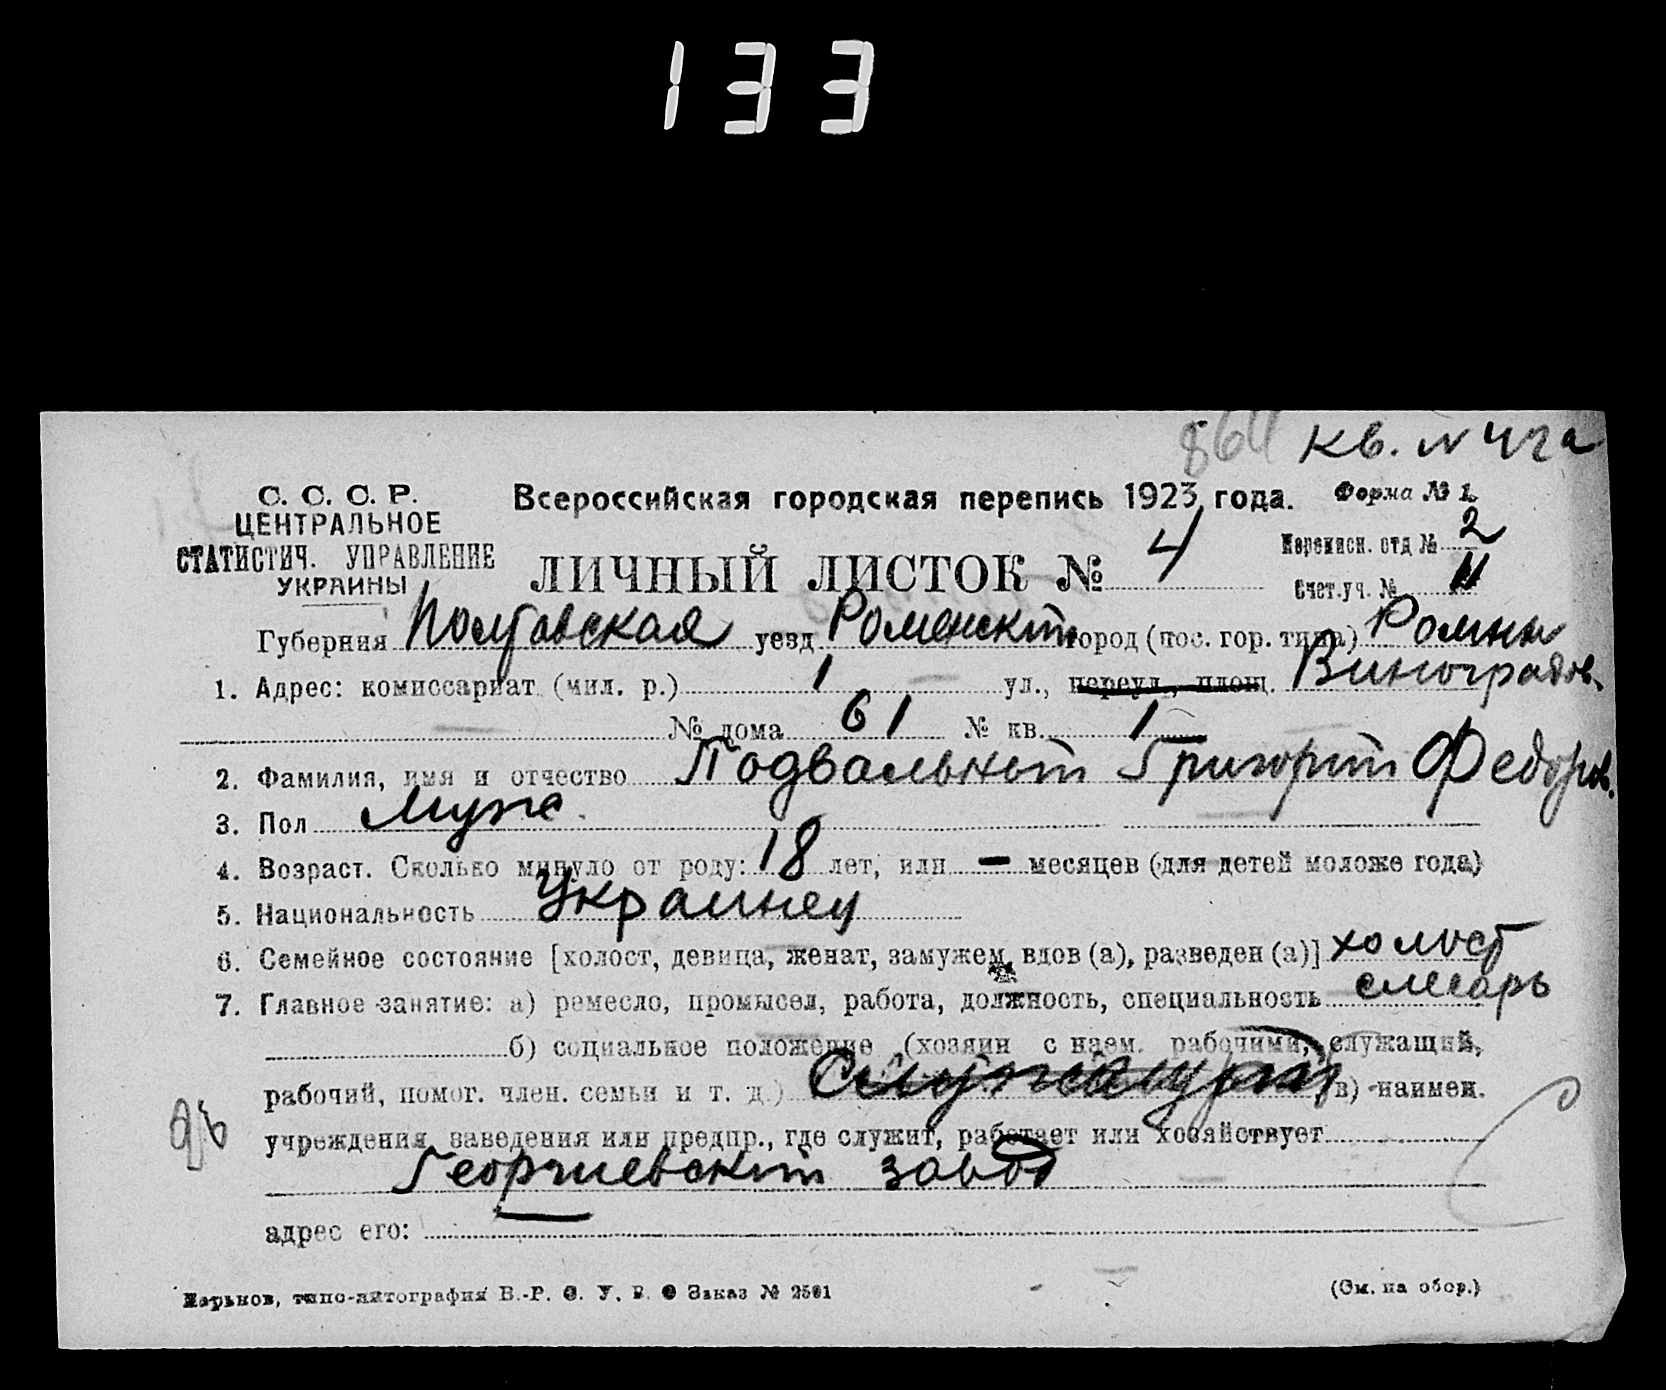 133
864 кв. № 42а
С. С. С. Р.
ЦЕНТРАЛЬНОЕ
СТАТИСТИЧ. УПРАВЛЕНИЕ
УКРАИНЫ
Всероссийская городская перепись 1923 года. Форма № 1
ЛИЧНЫЙ ЛИСТОК № 4
Переписн. отд № 2
Счет. уч. № 11
Губерния Полтавская уезд Роменский город (пос. гор. типа) Ромны
1. Адрес: комиссариат (мил. р.) 1 ул., переул., площ. Виноградов.
№ дома 61 № кв. 1
2. Фамилия, имя и отчество Подвальный Григорий Федоров.
3. Пол муж.
4. Возраст. Сколько минуло от роду: 18 лет, или — месяцев (для детей моложе года)
5. Национальность Украинец
6. Семейное состояние [холост, девица, женат, замужем, вдов (а), разведен (а)] холост
7. Главное занятие: а) ремесло, промысел, работа, должность, специальность слесарь
б) социальное положение (хозяин с наем. рабочими, служащий,
рабочий, помог. член. семьи и т. д.) в) наимен.
учреждения, заведения или предпр., где служит, работает или хозяйствует
Георгиевский завод
адрес его:
Харьков, типо-литография В.-Р. С. У. В. О Заказ № 2501 (См. на обор.)